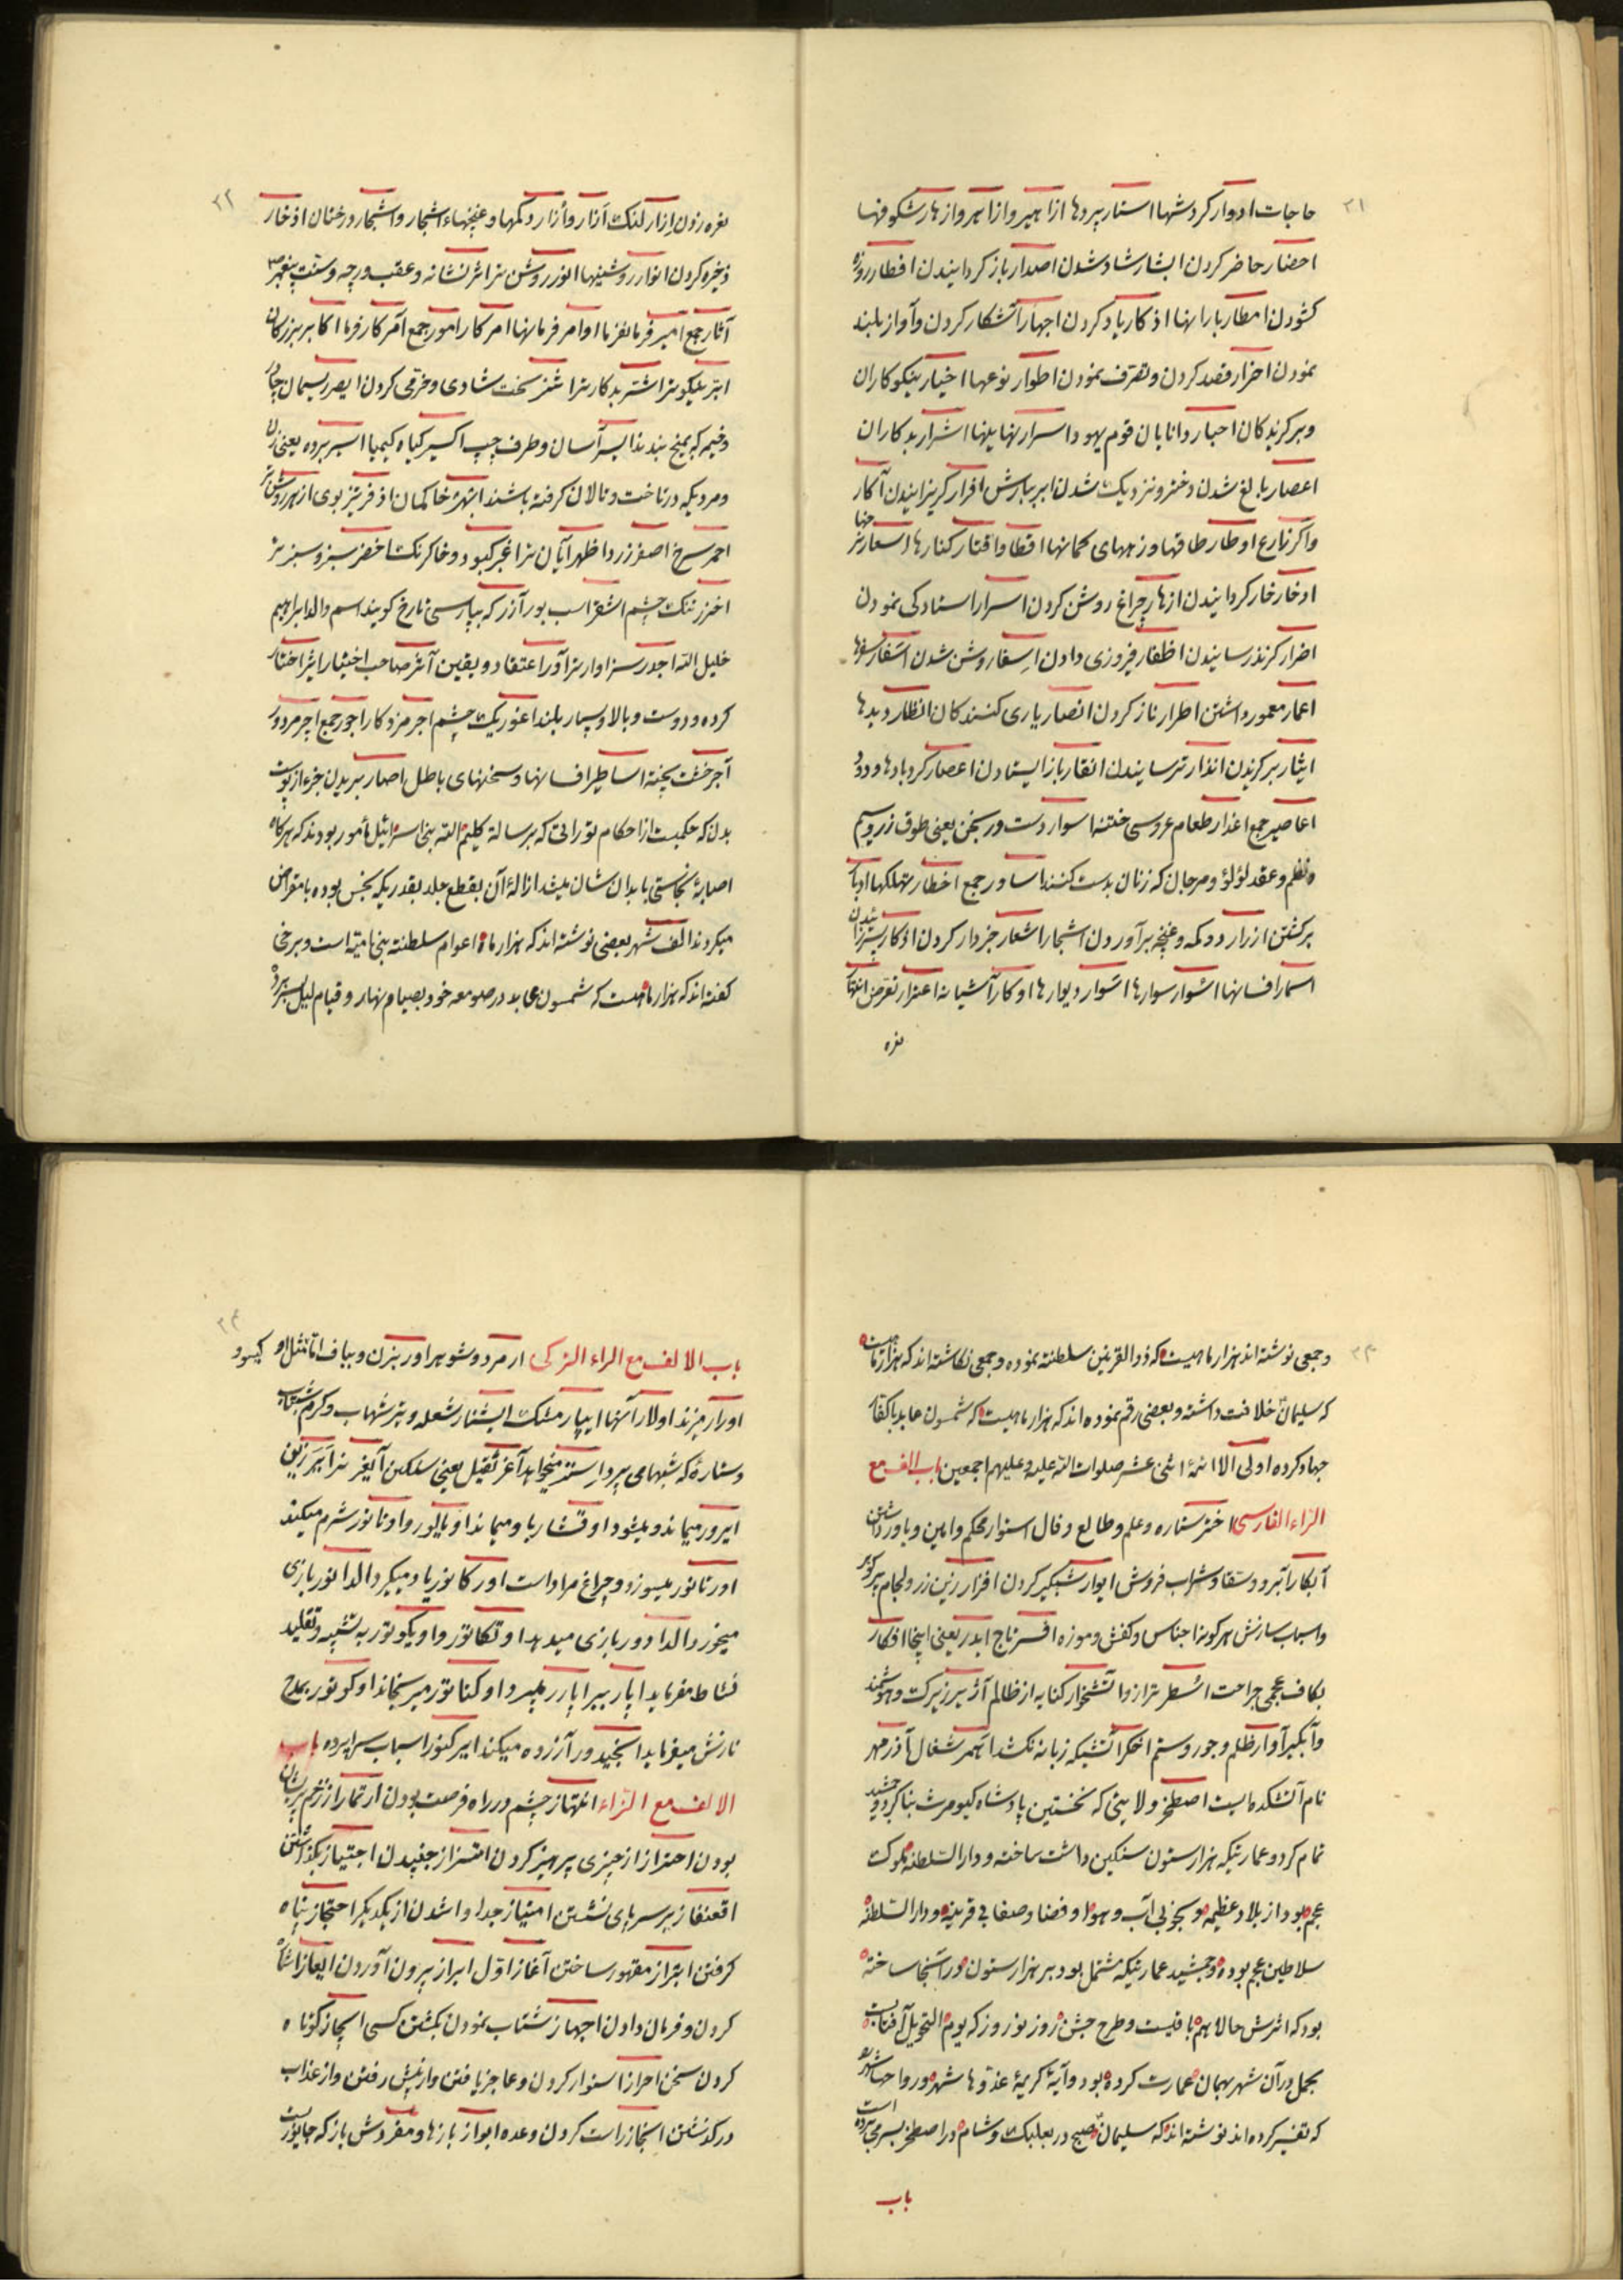 ۲۱
حاجات ادوار کردشها استار پردها ازاهیر وازاهر وازهار شکوفها
احضار حاضر کردن ابشار شاد شدن اصدار باز کردانیدن افطار روزه
کشودن امطار بارانها اذکار یاد کردن اجهار آشکار کردن وآواز بلند
نمودن احزار قصد کردن وتصرف نمودن اطوار نوعها اخیار نیکوکاران
وبرکزیدکان احبار دانایان قوم یهود اسرار نهانیها اشرار بدکاران
اعصار بالغ شدن دختر ونزدیک شدن ابر ببارش افرار کریزانیدن آکار
واکر زارع اوطار طاقها وزههای کمانها اقطا واقتار کنارها اسعار نرخها
ادخار خار کردانیدن ازهار چراغ روشن کردن اسرار استادکی نمودن
اضرار کزند رسانیدن اظفار فیروزی دادن اسفار روشن شدن اسفار سفرها
اعمار معمور داشتن اطرار ناز کردن انصار یاری کنندکان انظار دیدها
ایثار برکزیدن انذار ترسانیدن انقار باز ایستادن اعصار کردبادها ودود
اعاصیر جمع اغذار طعام عروسی ختنه اسوار دست ورنجن یعنی طوق زر وسیم
ونظم وعقد لؤلؤ ومرجان که زنان بدست کنند اساور جمع اخطار تهلکها ادبار
برکشتن ازرار دودکمه وغنچه برآوردن اشجار اشعار خبردار کردن اذکار
اسمار افسانها اسوار سوارها اسوار دیوارها اوکار آشیانه اعترار تعرض
نعره
۲۲
نعره زدن ازار لنک آزار وأزار دکمها وغنچهاء اشجار واشجار درختان اذخار
ذخیره کردن انوار روشنیها انور روشن تر اثر نشانه وعقب ورجه وسنت پیغمبر
آثار جمع امیر فرمانفرما اوامر فرمانها امر کار امور جمع آمر کارفرما اکابر بزرکان
ابر نیکوتر اشتر بدکارتر اشر سخت شادی وخرمی کردن ایصر ریسمان چادر
وخیمه که بمیخ بندند ایسر آسان وطرف چپ اکسیر کیاه کیمیا اسیر برده یعنی زن
ومردیکه در تاخت وتالان کرفته باشند ابتهر خاکمان اذفر تیز بوی ازهر روشن تر
احمر سرخ اصفر زرد اظهر آیان تر اغبر کبود وخاکرنک اخضر سبز وسبزتر
اخزر تنک چشم اشقر اسب بور آزر که بپارسی تارخ کویند اسم والد ابراهیم
خلیل الله اجدر سزاوارتر آور اعتقاد ویقین آثر صاحب اختیار ایثر اختیار
کرده ودوست وبالا وبسیار بلند اعور یک چشم اجر مزد کار اجور جمع اجیر مزدور
آجر خشت پخته اساطیر افسانها وسخنهای باطل اصهار بریدن جزء از پوست
بدن که حکمیست از احکام توراتی که برسالة کلیم الله بنی اسرائیل مأمور بودند که هرکاه
اصابهٔ نجاستی با بدان شان میشد ازالهٔ آن بقطع جلد بقدریکه نجس بوده بامقراض
میکردند الف شهر بعضی نوشته اند که هزار ماه اعوام سلطنته بنی امیه است وبرخی
کفته اند که هزار ماهیست که شمسون عابد در صومعه خود بصیام ونهار وقیام لیل بسر برده
۲۳
وجمعی نوشته اند هزار ماهیست که ذوالقرنین سلطنته نموده وجمعی نکاشته اند که هزار ماهیست
که سلیمان خلافت داشته وبعضی رقم نموده اند که هزار ماهیست که شمسون عابد با کفار
جهاد کرده اولی الا ائمهٔ اثنی عشر صلوات الله علیه وعلیهم اجمعین باب الالف مع
الراء الفارسی اختر ستاره وعلم وطالع وفال استوار محکم وامین وباور داشتن
آبکار آبرو وسقا وشراب فروش ایوار شبکیر کردن افزار زین زر ولجام
واسباب سازش هرکونه اجناس وکفش وموزه افسر تاج ایدر یعنی اینجا افکار
بکاف عجمی جراحت استر ترازو آتشخوار کنایه از ظالم آژیر زیرک وهوشمند
وآبکیر آوار ظلم وجور وستم اخکر آتشیکه زبانه نکشد اسمر شغال آذر مهر
نام آتشکدهایست اصطخر ولایتی که نخستین پادشاه کیومرث بنا کرد وجمشید
تمام کرد وعمارتیکه هزار ستون سنکین داشت ساخته ودار السلطنه ملوک
عجم بود از بلاد عظیمه وبخوبی آب وهوا وفضا وصفا بی قرینه ودار السلطنه
سلاطین عجم بوده وجمشید عمارتیکه مشتمل بود بر هزار ستون در آنجا ساخته
بود که اثرش حالا هم باقیست وطرح جشن روز نوروز که یوم التحویل آفتابست
بحمل در آن شهر بهمان عمارت کرده بود وآیهٔ کریمهٔ غدوها شهر ورواحها شهر
که تفسیر کرده اند نوشته اند که سلیمان صبح در بعلبک وشام در اصطخر بسر می برده است
باب
۲۴
باب الالف مع الراء الترکی ار مرد وشوهر اور بزن وبباف
اورار میزند اولار آنها ایپار مشک ایشنار شعله وتیر شهاب وکرم شبتاب
وستارهٔ که شبها می پرد ایستر میخواهد آغر ثقیل یعنی سنکین آیغر نر
ایرور میماند ومیشود اوقشار ربا ومیماند اویالور واوتانور شرم میکند
اورتانور میسوزد وچراغ مرا واست اورکانور یاد میکیرد الدانور بازی
میخورد الدادور بازی میدهد اوتکانور واویکونور به تشبیه وتقلید
نشاط مفرماید اپار میبرد اوکنانور میرنجاند اوکونور بمدح
نازش میفرماید انجیدور آزرده میکند ایرکنور اسباب سراپرده باب
الالف مع الزاء انتهاز چشم در راه فرصت بودن ارتماز از زخم پریشان
بودن احتراز از چیزی پرهیز کردن اهتزاز جنبیدن اجتیاز بکذاشتن
اقعنفاز بر سر پای نشستن امتیاز جدا واشدن از یکدیکر احتجاز پناه
کرفتن ابتزاز مقهور ساختن آغاز اول ابراز بیرون آوردن ایعاز اشاره
کردن وفرمان دادن اجهاز شتاب نمودن بکشتن کسی ایجاز کوتاه
کردن سخن احراز استوار کردن وعاجز یافتن واز پیش رفتن واز عذاب
درکذشتن انجاز راست کردن وعده ابواز بازها ومفردش باز که جانوریست